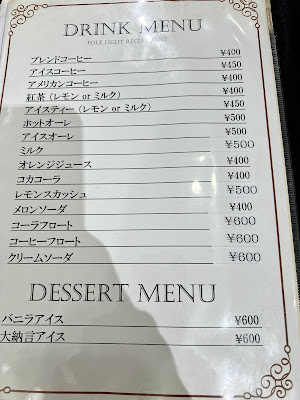 DRINK MENU
POLE LIGHT RISTAURANT
ブレンドコーヒー ¥400
アイスコーヒー ¥450
アメリカンコーヒー ¥400
紅茶（レモン or ミルク） ¥400
アイスティー（レモン or ミルク） ¥450
ホットオーレ ¥500
アイスオーレ ¥500
ミルク ¥500
オレンジジュース ¥400
コカコーラ ¥400
レモンスカッシュ ¥500
メロンソーダ ¥400
コーラフロート ¥600
コーヒーフロート ¥600
クリームソーダ ¥600
DESSERT MENU
バニラアイス ¥600
大納言アイス ¥600